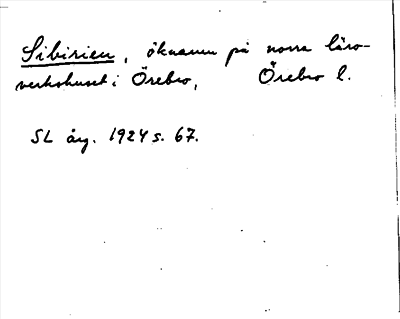 Sibirien, öknamn på norra läro-
verkshuset i Örebro, Örebro l.
SL årg. 1924 s. 67.